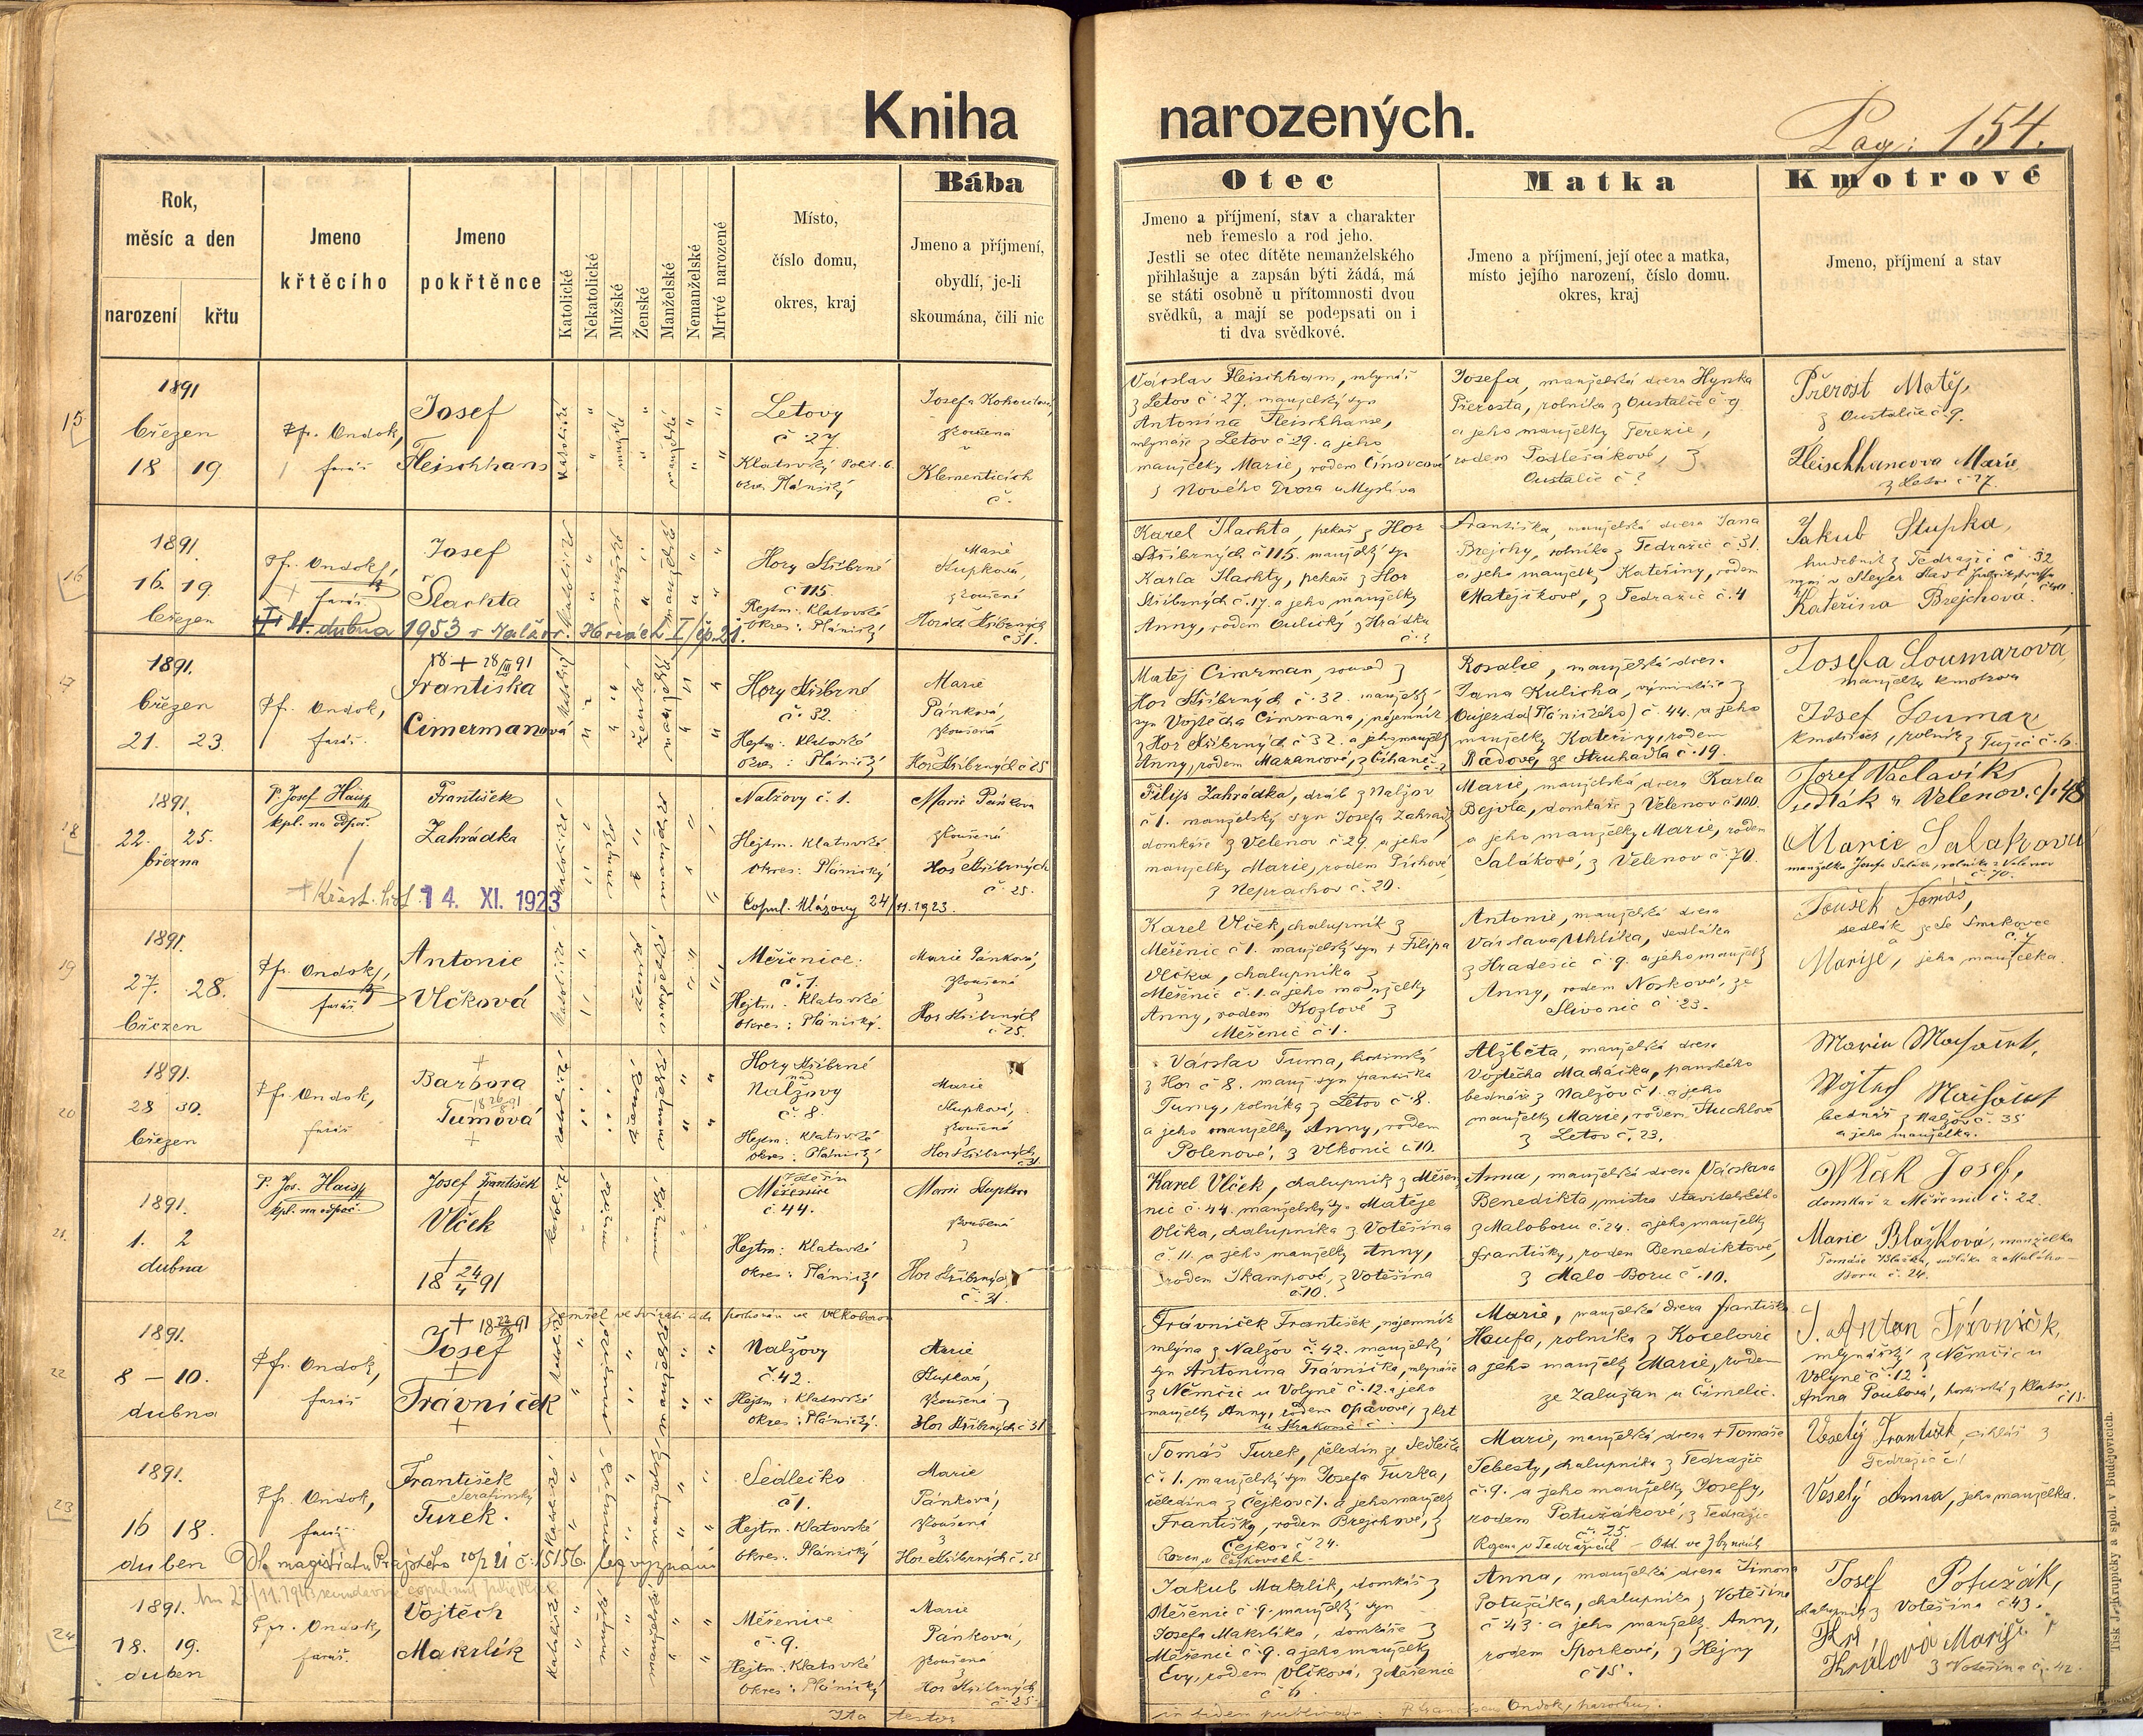 Kniha narozených.
Pag: 154.
Rok,
měsíc a den
narození
křtu
Jmeno
křtěcího
Jmeno
pokřtěnce
Katolické
Nekatolické
Mužské
Ženské
Manželské
Nemanželské
Mrtvé narozené
Místo,
číslo domu,
okres, kraj
Bába
Jmeno a příjmení,
obydlí, je-li
skoumána, čili nic
Otec
Jmeno a příjmení, stav a charakter
neb řemeslo a rod jeho.
Jestli se otec dítěte nemanželského
přihlašuje a zapsán býti žádá, má
se státi osobně u přítomnosti dvou
svědků, a mají se podepsati on i
ti dva svědkové.
Matka
Jmeno a příjmení, její otec a matka,
místo jejího narození, číslo domu.
okres, kraj
Kmotrové
Jmeno, příjmení a stav
15
1891
březen
18 19
Pfr. Ondok,
farář
Josef
Fleischhans
Letovy
č 27
Klatovský
Plánický
Josefa
zkoušená
v
Klementicích
č.
Václav Fleischhans, mlynář
z Letov č. 27. manželský syn
Antonína Fleischhanse,
mlynáře z Letov č 29. a jeho
manželky Marie, rodem Činovcové
z Nového Dvora u Myslíva
Josefa, manželská dcera Hynka
Přerosta, rolníka z Oustalče č 9
a jeho manželky Terezie,
rodem Podlešákové, z
Oustalče č ?
Přerost Matěj,
z Oustalče č 9.
Fleischhancova Marie
z Letov č 27.
16
1891.
16. 19
březen
Pfr. Ondok,
farář
Josef
Šlachta
Hory Stříbrné
č 115
Hejtm: Klatovské
Okres: Plánický
Marie
Stupková,
zkoušená
Horách Stříbrných
č 31.
4. dubna 1953 v Horách I/čp. 21.
Karel Šlachta, pekař z Hor
Stříbrných č 115. manželský syn
Karla Šlachty, pekaře z Hor
Stříbrných č. 17. a jeho manželky
Anny, rodem Oulický z Hrádku
č. ?
Františka, manželská dcera Jana
Brejchy, rolníka z Tedražic č 31.
a jeho manželky Kateřiny, rodem
Matějčkové, z Tedražic č. 4
Jakub Stupka,
hudebník z Tedražic č. 32
Kateřina Brejchova.
17
1891.
březen
21. 23.
Pfr. Ondok,
farář.
18 + 28/III 91
Františka
Cimermanová
Hory Stříbrné
č. 32.
Hejtm: Klatovské
Okres: Plánický
Marie
Pánková,
zkoušená
z
Hor Stříbrných č 25
Matěj Cimrman, soused z
Hor Stříbrných č. 32. manželský
syn Vojtěcha Cimrmana, nájemník
z Hor Stříbrných č 32. a jeho manželky
Anny, rodem Mazancové, z Číhaně č. ?
Rosalie, manželská dcera
Jana Kulicha, výminkáře z
Oujezda (Plánického) č. 44. a jeho
manželky Kateřiny, rodem
Radové, ze Struhadla č. 19.
Josefa Loumarová,
manželka kmotrova
Josef Loumar
kmotr, rolník z Tužic č. 6.
18
1891.
22. 25.
března
P. Josef Haisl
kpl. na odpoč.
František
Zahrádka
Nalžovy č. 1.
Hejtm. Klatovské
Okres: Plánický
Marie Pánkova
zkoušená
z
Hor Stříbrných
č. 25.
Křest. list 14. XI. 1923
Copul. Mlázovy 24/11. 1923.
Filip Zahrádka, dráb z Nalžov
č 1. manželský syn Josefa Zahrádky
domkáře z Velenov č 29. a jeho
manželky Marie, rodem Píchové
z Neprachov č. 20.
Marie, manželská dcera Karla
Bejvla, domkáře z Velenov č 100.
a jeho manželky Marie, rodem
Salákové, z Velenov č. 70.
Josef Václavík
sedlák z Velenov. č/. 48
Marie Salakovú
manželka Josefa Saláka, rolníka z Velenov
č. 70.
19
1891.
27. 28.
březen
Pfr. Ondok,
farář
Antonie
Vlčková
Měčenice:
č. 1.
Hejtm. Klatovské
Okres: Plánický.
Marie Pánková,
zkoušená
z
Hor Stříbrných
č. 25.
Karel Vlček, chalupník z
Měčenic č 1. manželský syn + Filipa
Vlčka, chalupníka z
Měčenic č. 1. a jeho manželky
Anny, rodem Kozlové z
Měčenic č. 1.
Antonie, manželská dcera
Václava Uhlíka, sedláka
z Hradešic č. 9. a jeho manželky
Anny, rodem Noskové, ze
Slivonic č. 23.
Toušek Tomáš,
sedlák
č. 7
a
Marije, jeho manželka.
20
1891.
28 30.
březen
Pfr. Ondok,
farář
Barbora
18 26/8 91
Tumová
Hory Stříbrné
nad
Nalžovy
č. 8.
Hejtm: Klatovské
Okres: Plánický
Marie
Stupková,
zkoušená
z
Hor Stříbrných
č. 31
Václav Tuma, hostinský
z Hor č 8. manž. syn Františka
Tumy, rolníka z Letov č. 8.
a jeho manželky Anny, rodem
Polenové, z Vlkonic č. 10.
Alžběta, manželská dcera
Vojtěcha Macháčka, panského
bednáře z Nalžov č 1. a jeho
manželky Marie, rodem Suchlové
z Letov č. 23.
Vojtěch
bednář z Nalžov č. 35
a jeho manželka.
21.
1891.
1. 2
dubna
P. Jos. Haisl
kpl. na odpoč.
Josef František
Vlček
18 24/4 91
Votěšín
Měčenice
č. 44.
Hejtm: Klatovské
Okres: Plánický
Marie Stupkova
zkoušená
z
Hor Stříbrných
č. 31.
Karel Vlček, chalupník z Měčenic
č. 44. manželský syn Matěje
Vlčka, chalupníka z Votěšína
č. 11. a jeho manželky Anny,
rodem Škampové, z Votěšína
č. 10.
Anna, manželská dcera Václava
Benedikta, mistra stavitelského
z Maloboru č. 24. a jeho manželky
Františky, rodem Benediktové,
z Malo-Boru č. 10.
Vlček Josef,
domkář z Měčenic č. 22.
Marie Blažková, manželka
Tomáše Blažka, sedláka z Malého-
Boru č. 24.
22
1891.
8 – 10.
dubna
Pfr. Ondok,
farář
Josef
Trávníček
Nalžovy
č. 42.
Hejtm: Klatovské
Okres: Plánický.
Marie
Stupková,
zkoušená z
Hor Stříbrných č 31
Trávníček František, nájemník
mlýna z Nalžov č. 42. manželský
syn Antonína Trávníčka, mlynáře
z Němčic u Volyně č. 12. a jeho
manželky Anny, rodem Opavové, z Krt
u Strakonic č.
Marie, manželská dcera Františka
Haufa, rolníka z Kocelovic
a jeho manželky Marie, rodem
ze Zalužan u Čimelic.
Antan Trávníček,
mlynářský z Němčic u
Volyně č. 12.
Anna Poubová, hostinská z Klatov
č 13.
23
1891.
16 18.
duben
Pfr. Ondok,
farář
František
Serafinský
Turek.
Sedlečko
č 1.
Hejtm. Klatovské
Okres: Plánický
Marie
Pánková,
zkoušená
z
Hor Stříbrných č. 25
Dle magistratu Pražského č. 15156. bez vyznání
Tomáš Turek, čeledín ze Sedlečka
č. 1. manželský syn Josefa Turka,
čeledína z Čejkov č 1. a jeho manželky
Františky, rodem Brejchové, z
Čejkov č 24.
Rozen v Čejkovech.
Marie, manželská dcera + Tomáše
Šebesty, chalupníka z Tedražic
č. 9. a jeho manželky Josefy,
rodem Potužákové, z Tedražic
č. 25.
Rozena v Tedražicích
Veselý František, cihlář z
Tedražic č. 1
Veselý Anna, jeho manželka.
24
1891.
18. 19.
duben
Pfr. Ondok,
farář.
Vojtěch
Makrlík
Měčenice
č. 9.
Hejtm. Klatovské
Okres: Plánický
Marie
Pánková,
zkoušená
z
Hor Stříbrných
č. 25
Jakub Makrlík, domkář z
Měčenic č. 9. manželský syn
Josefa Makrlíka, domkáře z
Měčenic č. 9. a jeho manželky
Evy, rodem Vlčková, z Měčenic
č. 6.
Anna, manželská dcera Šimona
Potužáka, chalupníka z Votěšína
č 43. a jeho manželky Anny,
rodem Šporkové, z Hejny
č 15.
Josef Potužák,
chalupník z Votěšína č 43.
Králová Marije
z Votěšína č. 42.
Ita testor
Ondok, parochus.
Tisk J. Krupičky a spol. v Budějovicích.